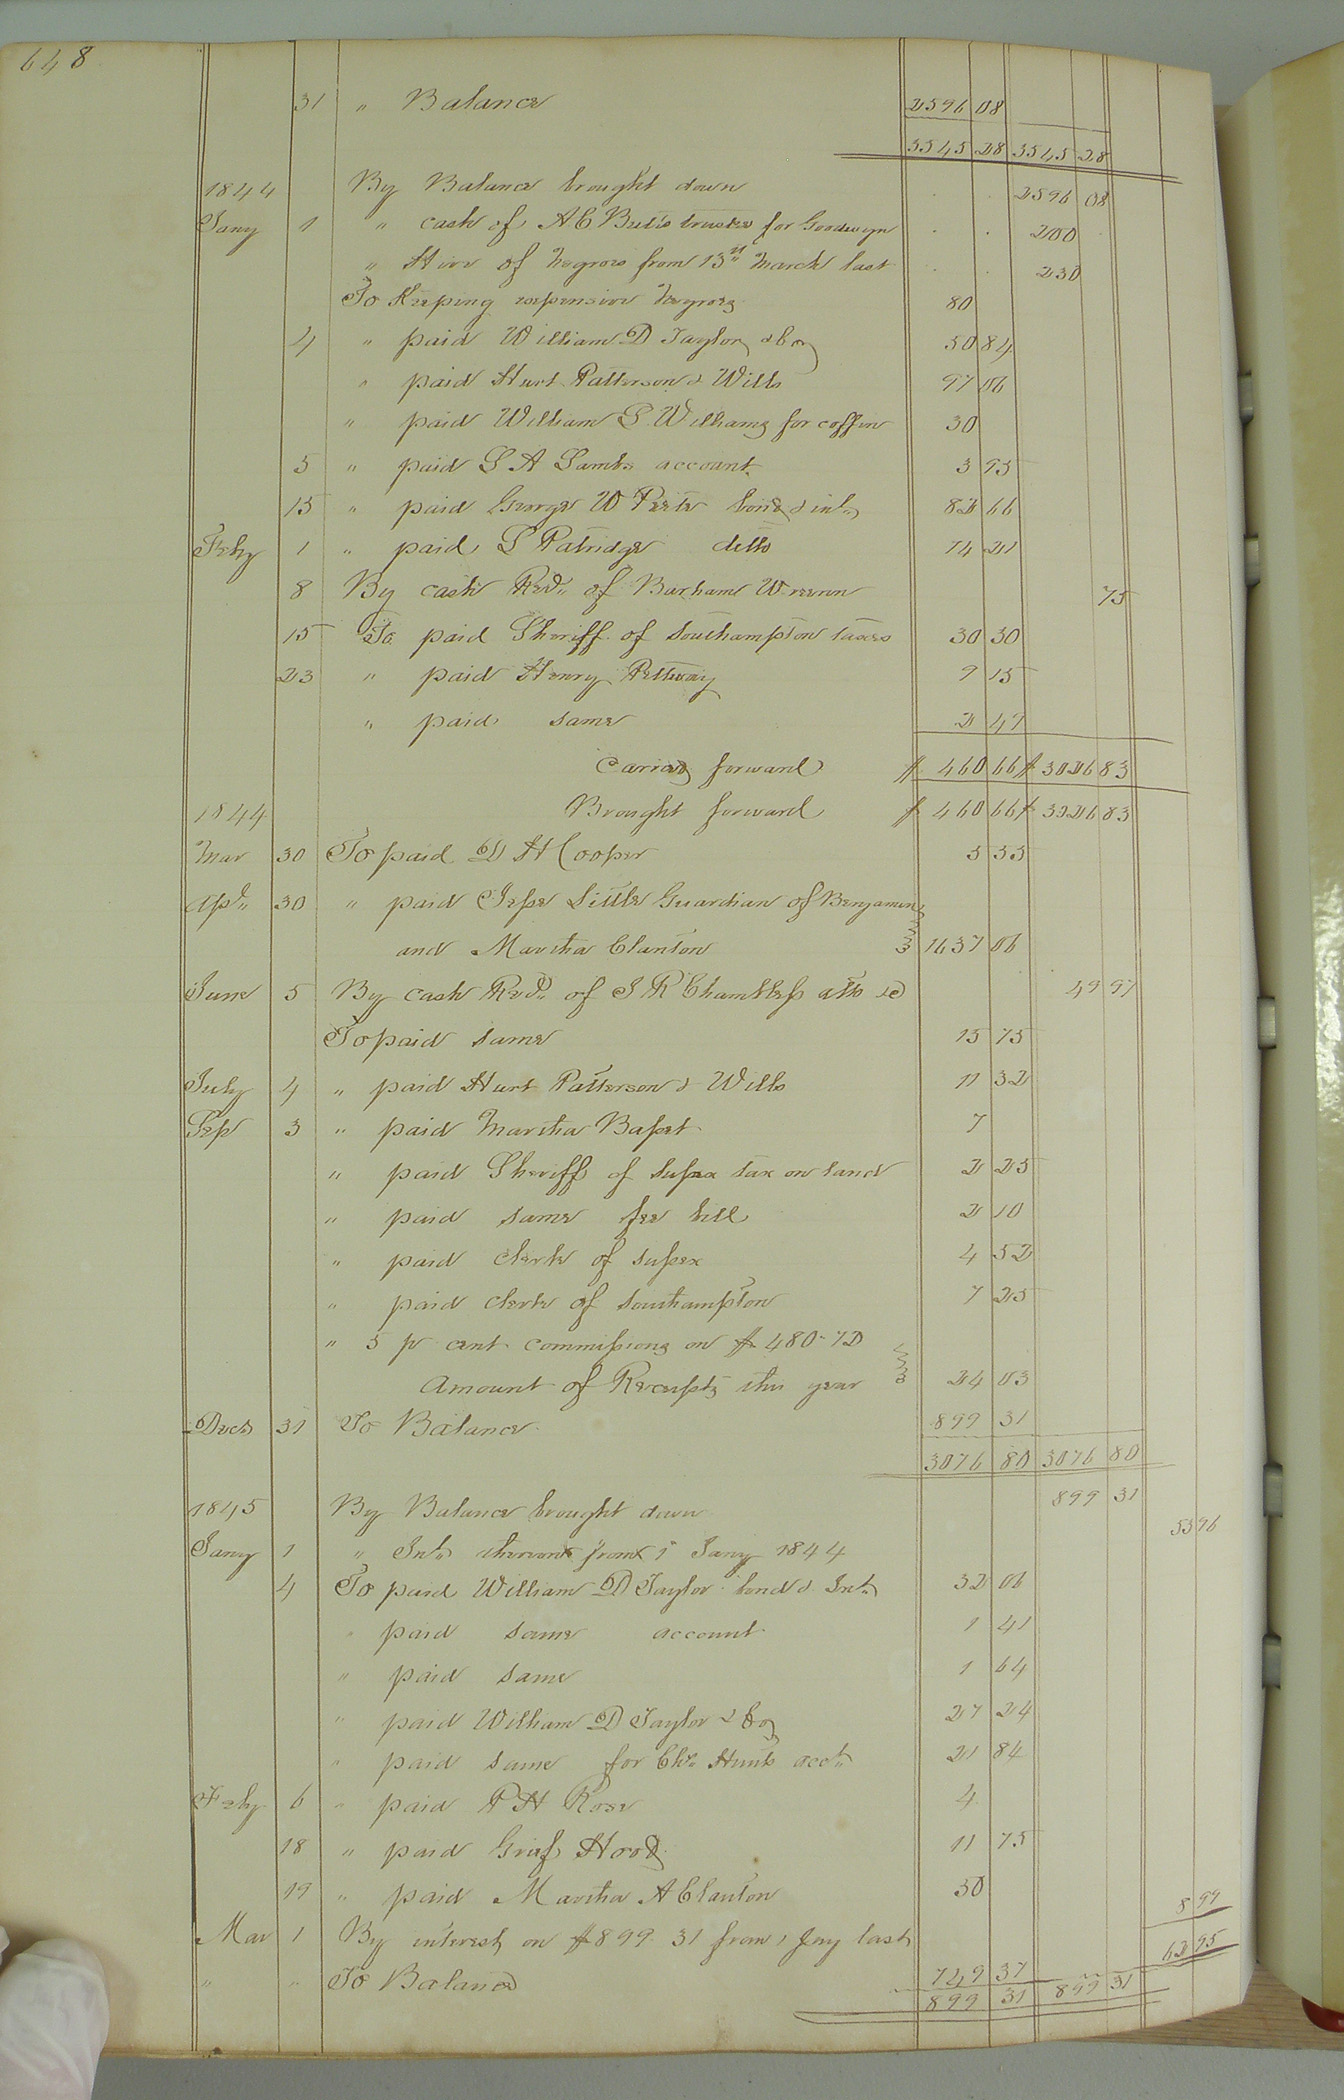 648
31 " Balance 2596 08
3545 28 3545 28
1844 By Balance brought down 2596 08
Jany 1 " cash of A C Butts trustee for Goodwyn 200
" Hire of Negroes from 13th March last 230
To Keeping expensive Negroes 80
4 " paid William D Taylor & Co 50 84
" paid Hurt Patterson & Wills 97 06
" paid William S Williams for coffin 30
5 " paid S A Lambs account 3 95
15 " paid George W Peete bond & int 82 66
Feby 1 " paid S Patridge ditto 74 21
8 By cash Recd of Barham Wrenn 75
15 To paid Sheriff of Southampton taxes 30 30
23 " paid Henry Pettway 9 15
" paid same 2 47
Caried forward $ 460 66 $ 3026 83
1844 Brought forward $ 460 66 $ 3026 83
Mar 30 To paid D H Cooper 5 35
Apl 30 " paid Jesse Little Guardian of Benjamin
and Martha Clanton 1637 06
June 5 By cash Recd of J R Chambless atto &c 49 97
To paid same 15 75
July 4 " paid Hurt Patterson & Wills 11 32
Sep 3 " paid Martha Basset 7
" paid Sheriff of Sussex tax on land 2 25
" paid same fee bill 2 10
" paid clerk of Sussex 4 52
" paid clerk of Southampton 7 25
" 5 pr cent commissions on $480.72
Amount of Receipts this year 24 03
Decr 31 To Balance 899 31
3076 80 3076 80
1845 By Balance brought down 899 31
Jany 1 " Int thereon from 1 Jany 1844 53 96
4 To paid William D Taylor bond & Int 32 06
" paid same account 1 41
" paid same 1 64
" paid William D Taylor & Co 27 24
" paid same for Chs Hunts acct 21 84
Feby 6 " paid P H Rose 4
18 " paid Grief Hood 11 75
19 " paid Martha A Clanton 50
Mar 1 By interest on $899.31 from 1 Jny last 8 99
62 95
" " To Balance 749 37
899 31 899 31